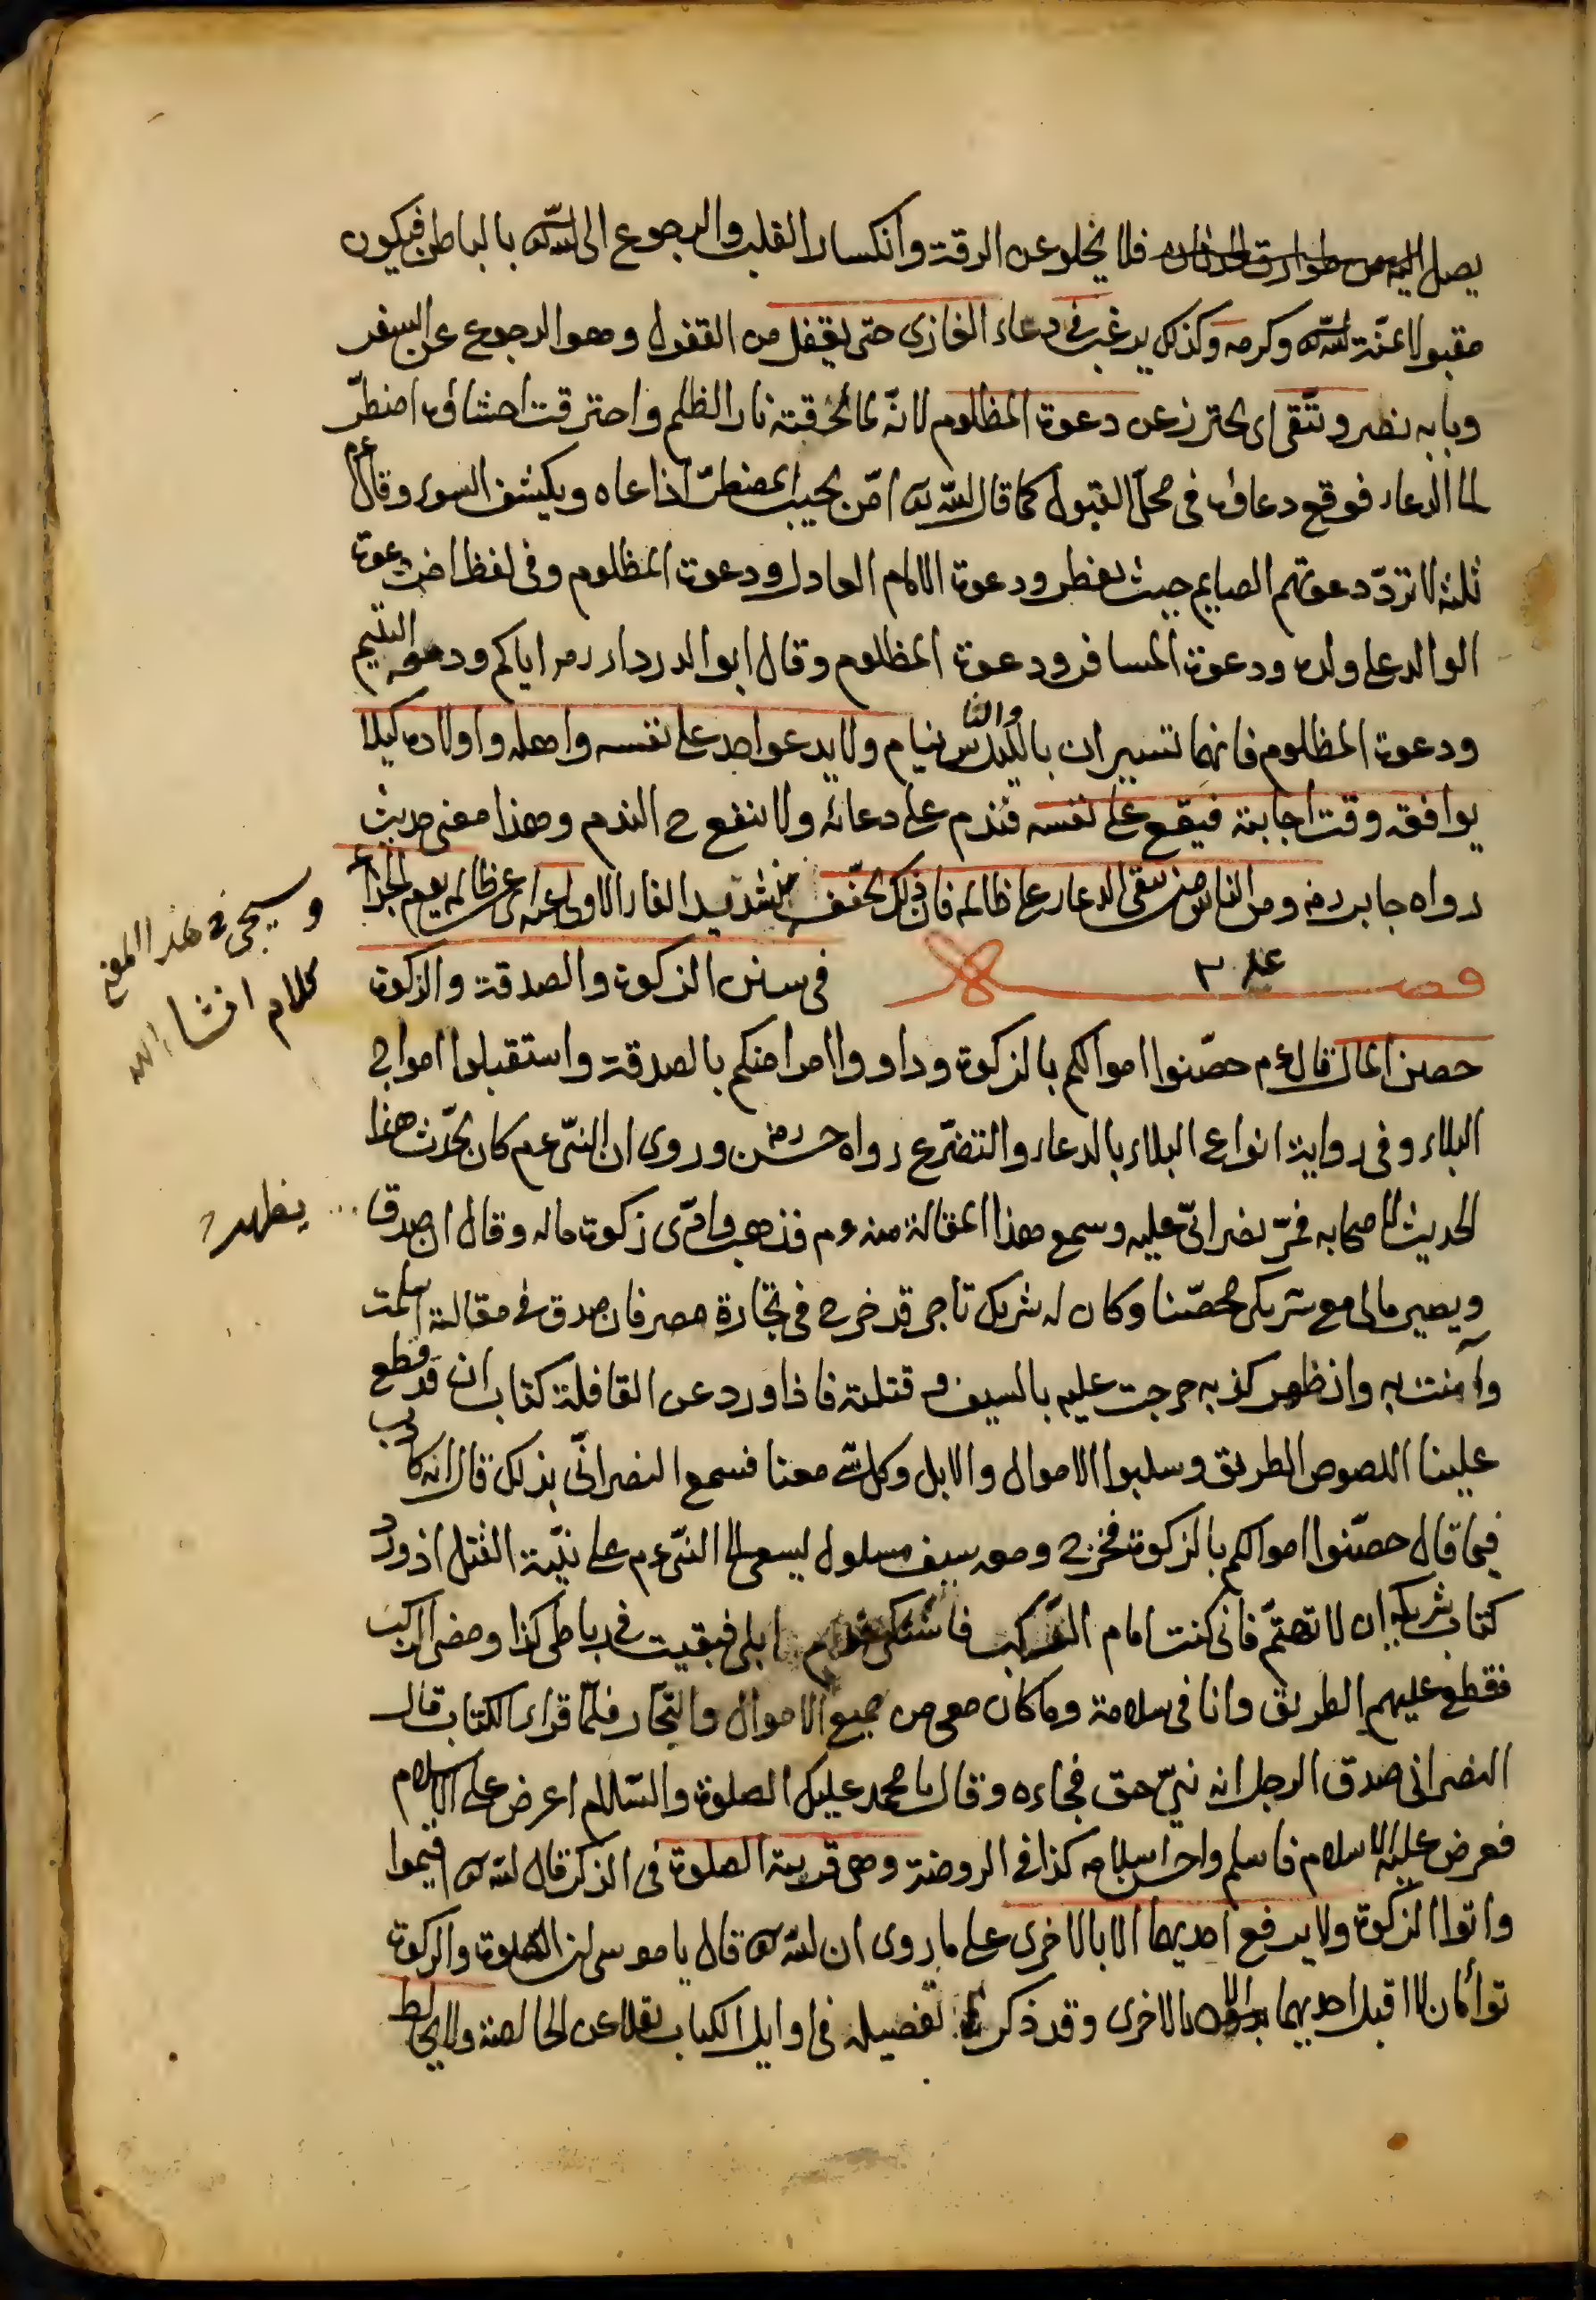 يصل اليه من طوارق الحدثان فلا يخلو عن الرقة وانكسار القلب والرجوع الى الله تع بالباطن فيكون
مقبولا بمنة الله تع وكرمه وكذلك يرغب في دعاء الغازى حتى يقفل من القفول وهو الرجوع عن السفر
وبابه نصر وتتقى اى يحترز عن دعوة المظلوم لانه لما لحقته نار الظلم واحترقت احشاؤه اضطر
لما الدعاء فوقع دعاؤه فى محل القبول كما قال الله تع امن يجيب المضطر اذا دعاه ويكشف السوء وقال عم
ثلثة لا ترد دعوتهم الصايم حيث يفطر ودعوة الامام العادل ودعوة المظلوم وفى لفظ اخر دعوة
الوالد على ولده ودعوة المسافر ودعوة المظلوم وقال ابو الدرداء رضه اياكم ودمعة اليتيم
ودعوة المظلوم فانهما تسيران بالليل والناس نيام ولا يدعو احد على نفسه واهله واولاده كيلا
يوافقه وقت اجابته فيقع على نفسه فندم على دعائه ولا ينفع ح الندم وهذا معنى حديث
رواه جابر رضه ومن الناس من يتقى الدعاء على ظالمه فان ذلك يخفف بتشديد الفاء الاولى عنه اى عن ظالمه يوم الجزاء
فصل ٣ فى سنن الزكوة والصدقة والزكوة
حصن المال قال عم حصنوا اموالكم بالزكوة وداووا امراضكم بالصدقة واستقبلوا امواج
البلاء وفى رواية انواع البلاء بالدعاء والتضرع رواه حسن رضه وروى ان النبى عم كان يحدث هذا
الحديث لاصحابه فمر نصرانى عليه وسمع هذا المقالة منه عم فذهب وادى زكوة ماله وقال ان صدق
ويصير مالى مع شريكى محصنا وكان له شريك تاجر قد خرج فى تجارة مصر فان صدق فى مقالته اسلمت
وآمنت به وان ظهر كذبه خرجت عليه بالسيف وقتلته فاذا ورد عن القافلة كتاب ان قد قطع
علينا اللصوص الطريق وسلبوا الاموال والابل وكل شئ معنا فسمع النصرانى بذلك قال انه كاذب
فيما قال حصنوا اموالكم بالزكوة فخرج ومعه سيف مسلول ليسعى الى النبى عم على نية القتل اذ ورد
كتاب شريكه ان لا تهتم فانى كنت امام الركب فاشتكى ابلى فبقيت فى رباط كذا ومضى الركب
فقطع عليهم الطريق وانا فى سلامة وما كان معى من جميع الاموال والتجار فلما قراء الكتاب قال
النصرانى صدق الرجل انه نبى حق فجاءه وقال يا محمد عليك الصلوة والسلام اعرض على الاسلام
فعرض عليه الاسلام فاسلم واحسن اسلامه كذا فى الروضة وهى قرينة الصلوة فى الذكر قال الله تع اقيموا
واتوا الزكوة ولا يرفع احديهما الا بالاخرى على ما روى ان الله تع قال يا موسى ان الصلوة والزكوة
توأمان لا اقبل احديهما الا بالاخرى وقد ذكر تفصيله فى اوايل الكتاب نقلا عن الخالصة ولا يخالط
وسيجئ فى هذا المعنى
كلام انشاء الله
يظهر